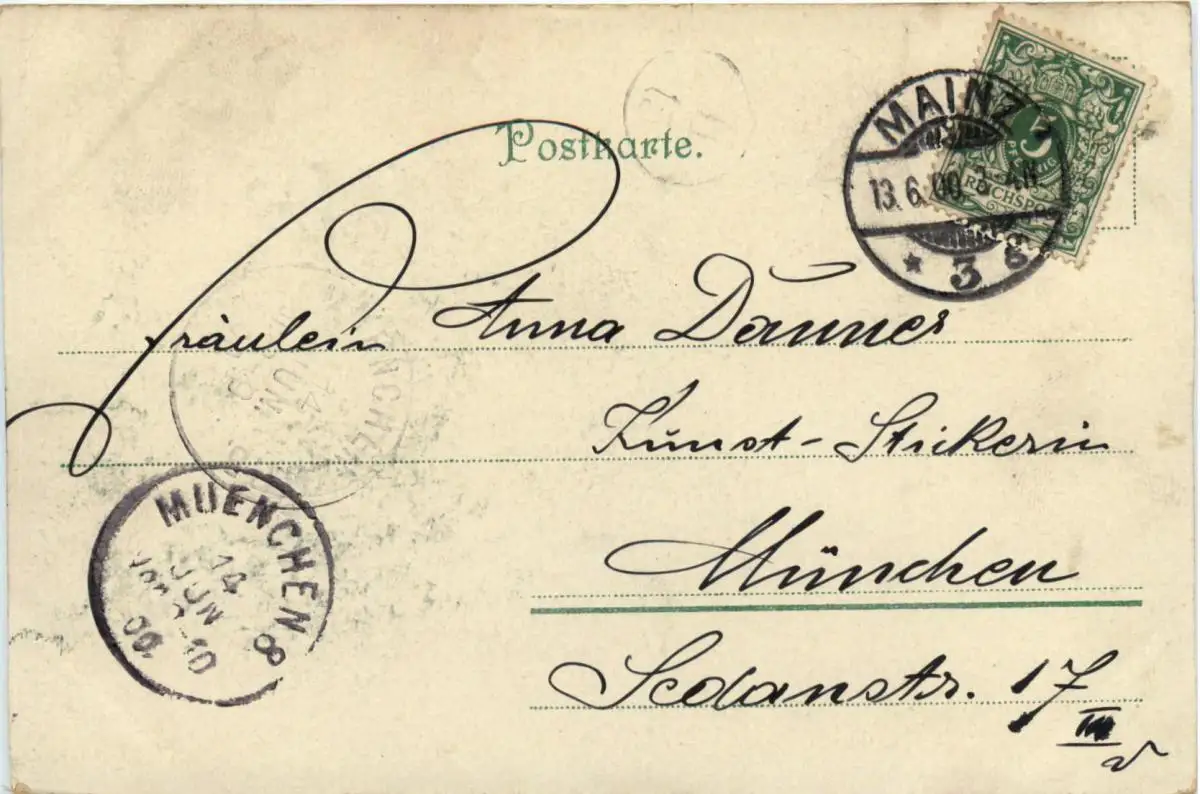 Postkarte.
MAINZ
13.6.00. 3-4N
* 3 c
5
PFENNIG
REICHSPOST
Fräulein Anna Danner
Kunst-Stickerin
München
Sedanstr. 17
III
MUENCHEN 8
14
JUN
00